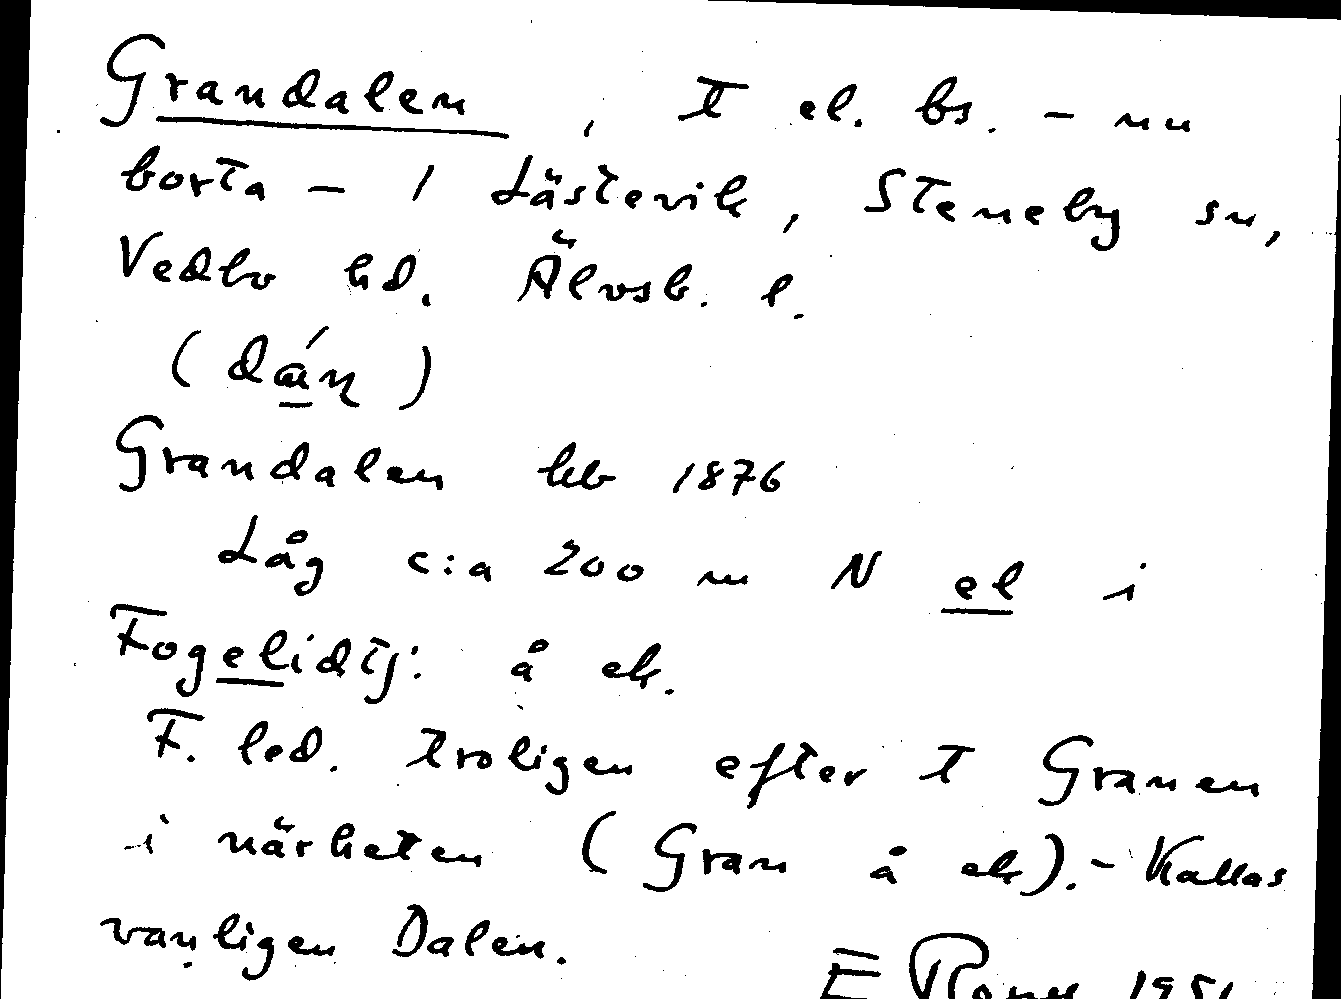 Grandalen, T el. bs. - nu
borta - i Lästevik, Steneby sn,
Vedbo hd. Älvsb. l.
(dán)
Grandalen kb 1876
Låg c:a 200 m N el i
Fogelidtj: å ek.
F. led. troligen efter T Granen
i närheten (Gran å ek). - Kallas
vanligen Dalen.
E 1951